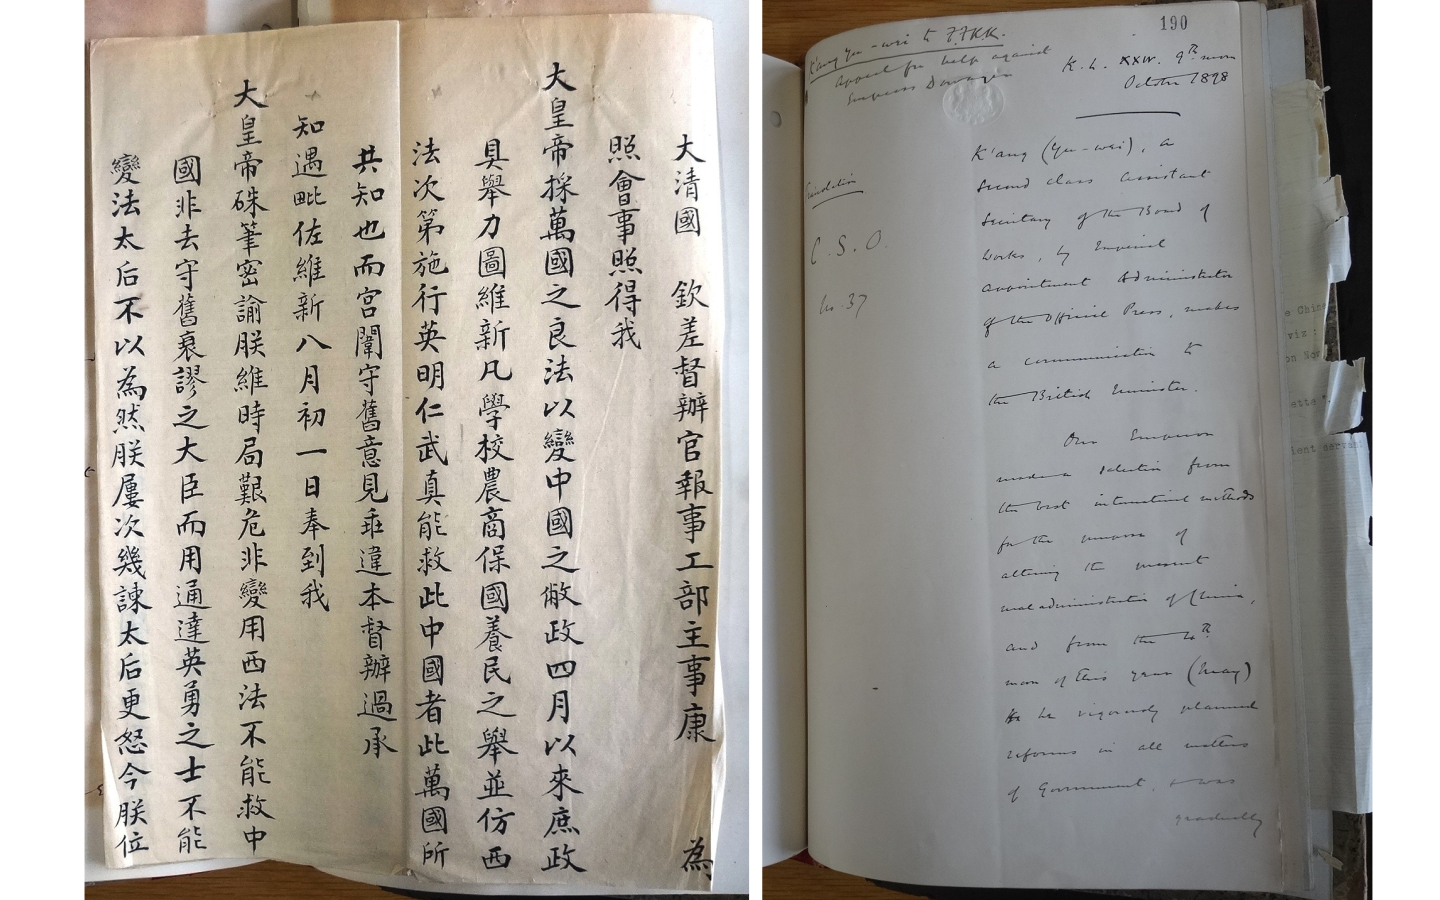 大清國 欽差督辦官報事工部主事康 為
照會事照得我
大皇帝採萬國之良法以變中國之敝政四月以來庶政
具舉力圖維新凡學校農商保國養民之舉並仿西
法次第施行英明仁武真能救此中國者此萬國所
共知也而宮闈守舊意見乖違本督辦過承
知遇毗佐維新八月初一日奉到我
大皇帝硃筆密諭朕維時局艱危非變用西法不能救中
國非去守舊衰謬之大臣而用通達英勇之士不能
變法太后不以為然朕屢次幾諫太后更怒今朕位
190
K'ang Yu-wei to
Appeal for help against
Empress Dowager
K. H. XXIV. 9th moon
October 1898
C. S. O.
No. 37
K'ang (Yu-wei), a
second class assistant
Secretary of the Board of
Works, by Imperial
appointment Administrator
of the Official Press, makes
a communication to
the British Minister.
Our Emperor
made a selection from
the best international methods
for the purpose of
altering the present
maladministration of China,
and from the 4th
moon of this year (May)
he vigorously planned
reforms in all matters
of Government, & was
gradually